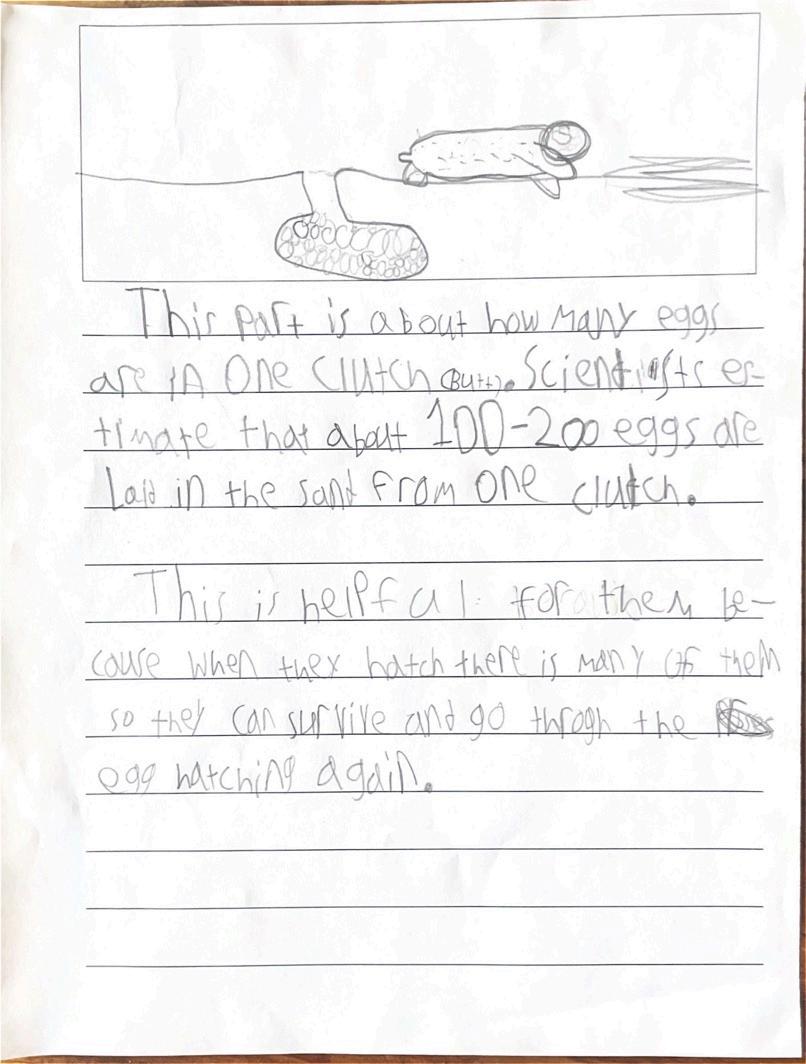 This part is about how many eggs
are in one clutch (Butt). Scientists es-
timate that about 100-200 eggs are
Laid in the sand from one clutch.
This is helpful for them be-
cause when they hatch there is many of them
so they can survive and go throgh the
egg hatching again.